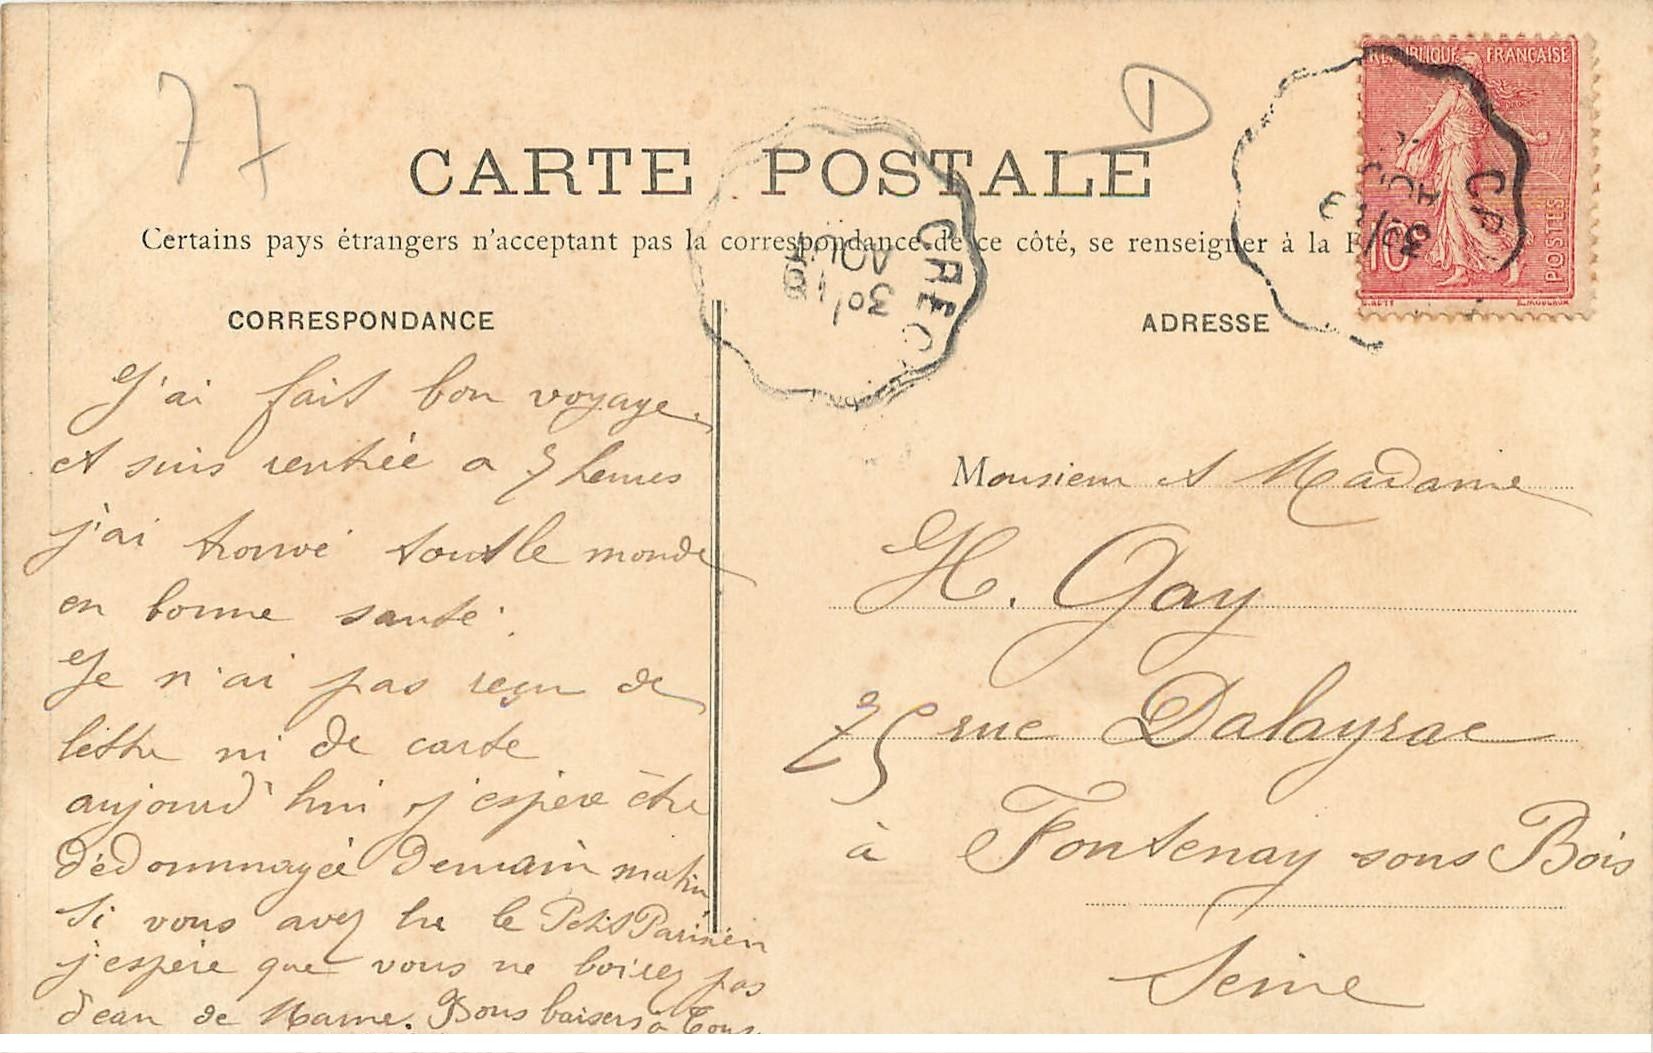 77
CARTE POSTALE
Certains pays étrangers n'acceptant pas la correspondance de ce côté, se renseigner à la
CORRESPONDANCE
J'ai fait bon voyage.
et suis rentrée a 7 heures
j'ai trouvé tout le monde
en bonne santé.
Je n'ai pas reçu de
lettre ni de carte
aujourd'hui j'espère être
dédommagée demain matin
Si vous avez lu le Petit Parisien
j'espère que vous ne boirez pas
d'eau de Marne. Bons baisers à Tous
REPUBLIQUE FRANÇAISE
POSTES
10
CREC
30
AOUT
ADRESSE
Monsieur et Madame
H. Gay
75 rue Dalayrac
à Fontenay sous Bois
Seine